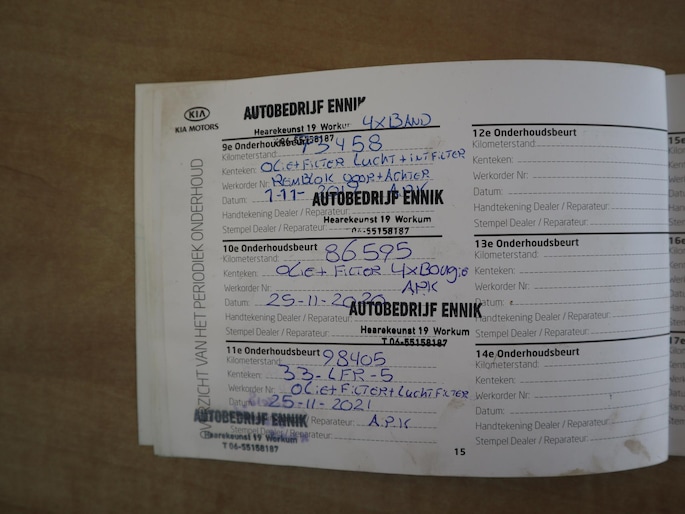 KIA
KIA MOTORS
OVERZICHT VAN HET PERIODIEK ONDERHOUD
AUTOBEDRIJF ENNIK
Hearekeunst 19 Workum
06-55158187
4xBAND
9e Onderhoudsbeurt
Kilometerstand: 73458
Kenteken: OLie+FilTER Lucht+intFilTER
Werkorder Nr: REMBLOK VOOR+AchTER
Datum: 1-11-2019 A.P.K
AUTOBEDRIJF ENNIK
Hearekeunst 19 Workum
06-55158187
Handtekening Dealer / Reparateur:
Stempel Dealer / Reparateur:
10e Onderhoudsbeurt
Kilometerstand: 86595
Kenteken: OLie+ FilTER 4xBougie
Werkorder Nr: A.P.K
Datum: 25-11-2020
AUTOBEDRIJF ENNIK
Hearekeunst 19 Workum
T 06-55158187
Handtekening Dealer / Reparateur:
Stempel Dealer / Reparateur:
11e Onderhoudsbeurt
Kilometerstand: 98405
Kenteken: 33-LFR-5
Werkorder Nr: OLie+FilTER+LuchtFilTER
Datum: 25-11-2021
Reparateur: A.P.K
Stempel Dealer / Reparateur:
AUTOBEDRIJF ENNIK
Hearekeunst 19 Workum
T 06-55158187
12e Onderhoudsbeurt
Kilometerstand:
Kenteken:
Werkorder Nr:
Datum:
Handtekening Dealer / Reparateur:
Stempel Dealer / Reparateur:
13e Onderhoudsbeurt
Kilometerstand:
Kenteken:
Werkorder Nr:
Datum:
Handtekening Dealer / Reparateur:
Stempel Dealer / Reparateur:
14e Onderhoudsbeurt
Kilometerstand:
Kenteken:
Werkorder Nr:
Datum:
Handtekening Dealer / Reparateur:
Stempel Dealer / Reparateur:
15
15e
16e
17e